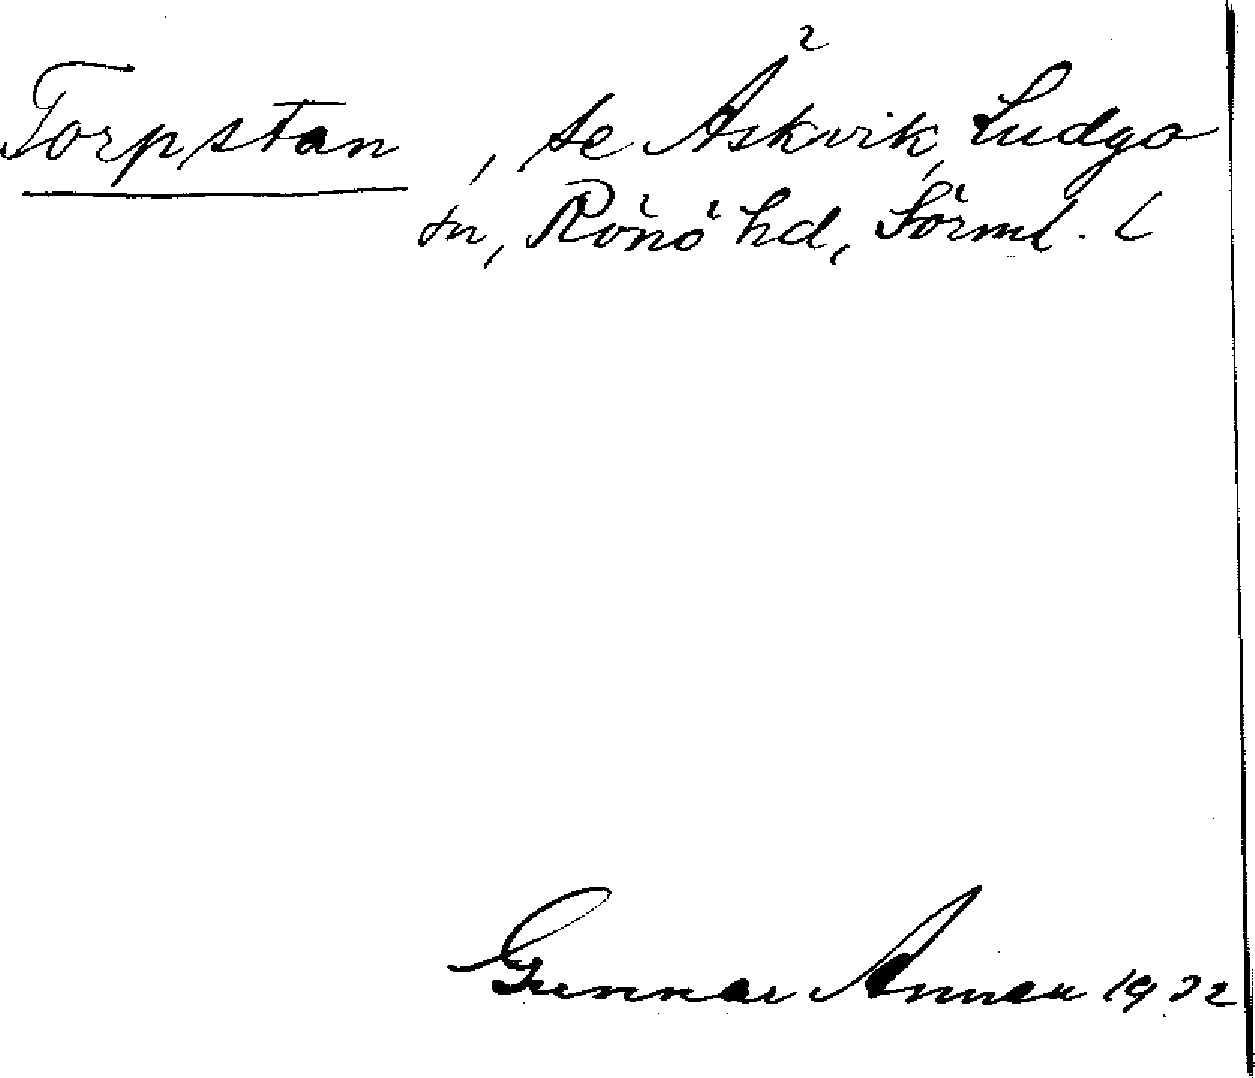 Torpstan, se Åskvik, Ludgo
sn, Rönö hd, Sörml. l
Gunnar Annell 1932